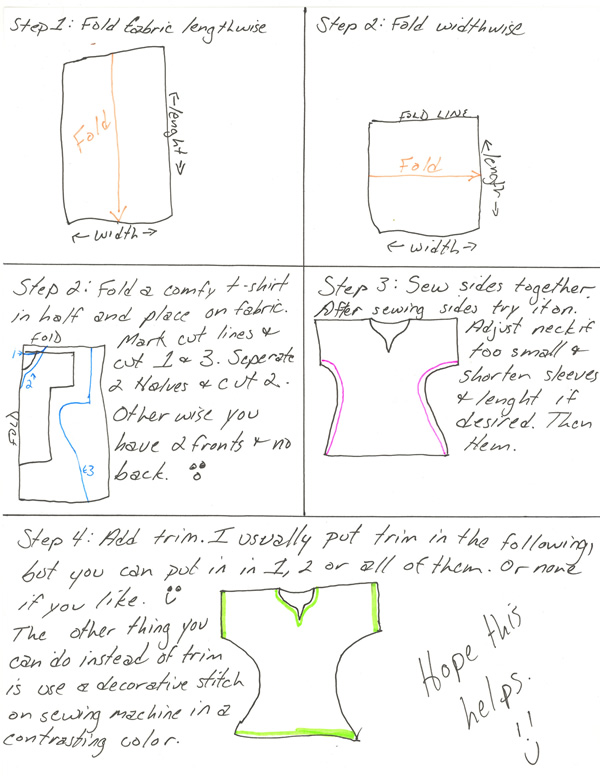 Step 1: Fold fabric lengthwise
Fold
← lenght →
← width →
Step 2: Fold widthwise
FOLD LINE
Fold
← length →
← width →
Step 2: Fold a comfy t-shirt
in half and place on fabric.
FOLD
FOLD
1
2
3
Mark cut lines &
cut 1 & 3. Seperate
2 Halves & cut 2.
Other wise you
have 2 fronts & no
back.
Step 3: Sew sides together.
After sewing sides try it on.
Adjust neck if
too small &
shorten sleeves
& lenght if
desired. Then
Hem.
Step 4: Add trim. I usually put trim in the following,
but you can put in in 1, 2 or all of them. Or none
if you like.
The other thing you
can do instead of trim
is use a decorative stitch
on sewing machine in a
contrasting color.
Hope this
helps.